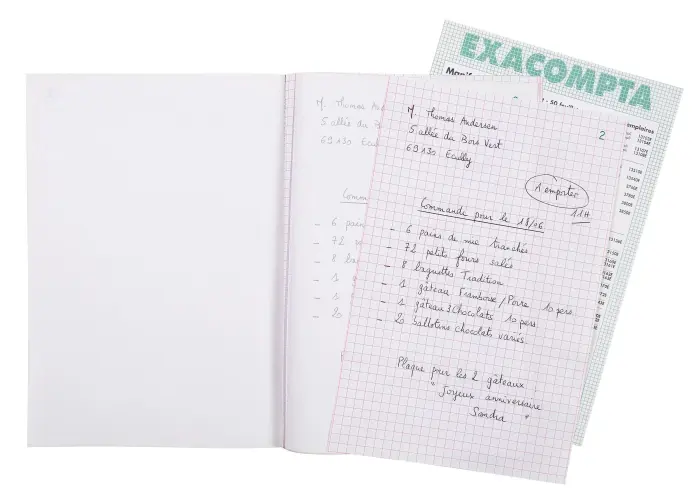 EXACOMPTA
M. Thomas Anderson
5 allée du Bois Vert
69130 Ecully
2
à emporter
11H
Commande pour le 18/06
- 6 pains de mie tranchés
- 72 petits fours salés
- 8 baguettes Tradition
- 1 gâteau Framboise/Poire 10 pers.
- 1 gâteau 3 Chocolats 10 pers.
- 20 ballotins chocolats variés.
Plaque pour les 2 gâteaux :
" Joyeux anniversaire
Sandra "
M. Thomas Ander
5 allée du
69130 Ecully
Comm
- 6 pain
- 72 peti
- 8 bague
- 1
- 1
- 20